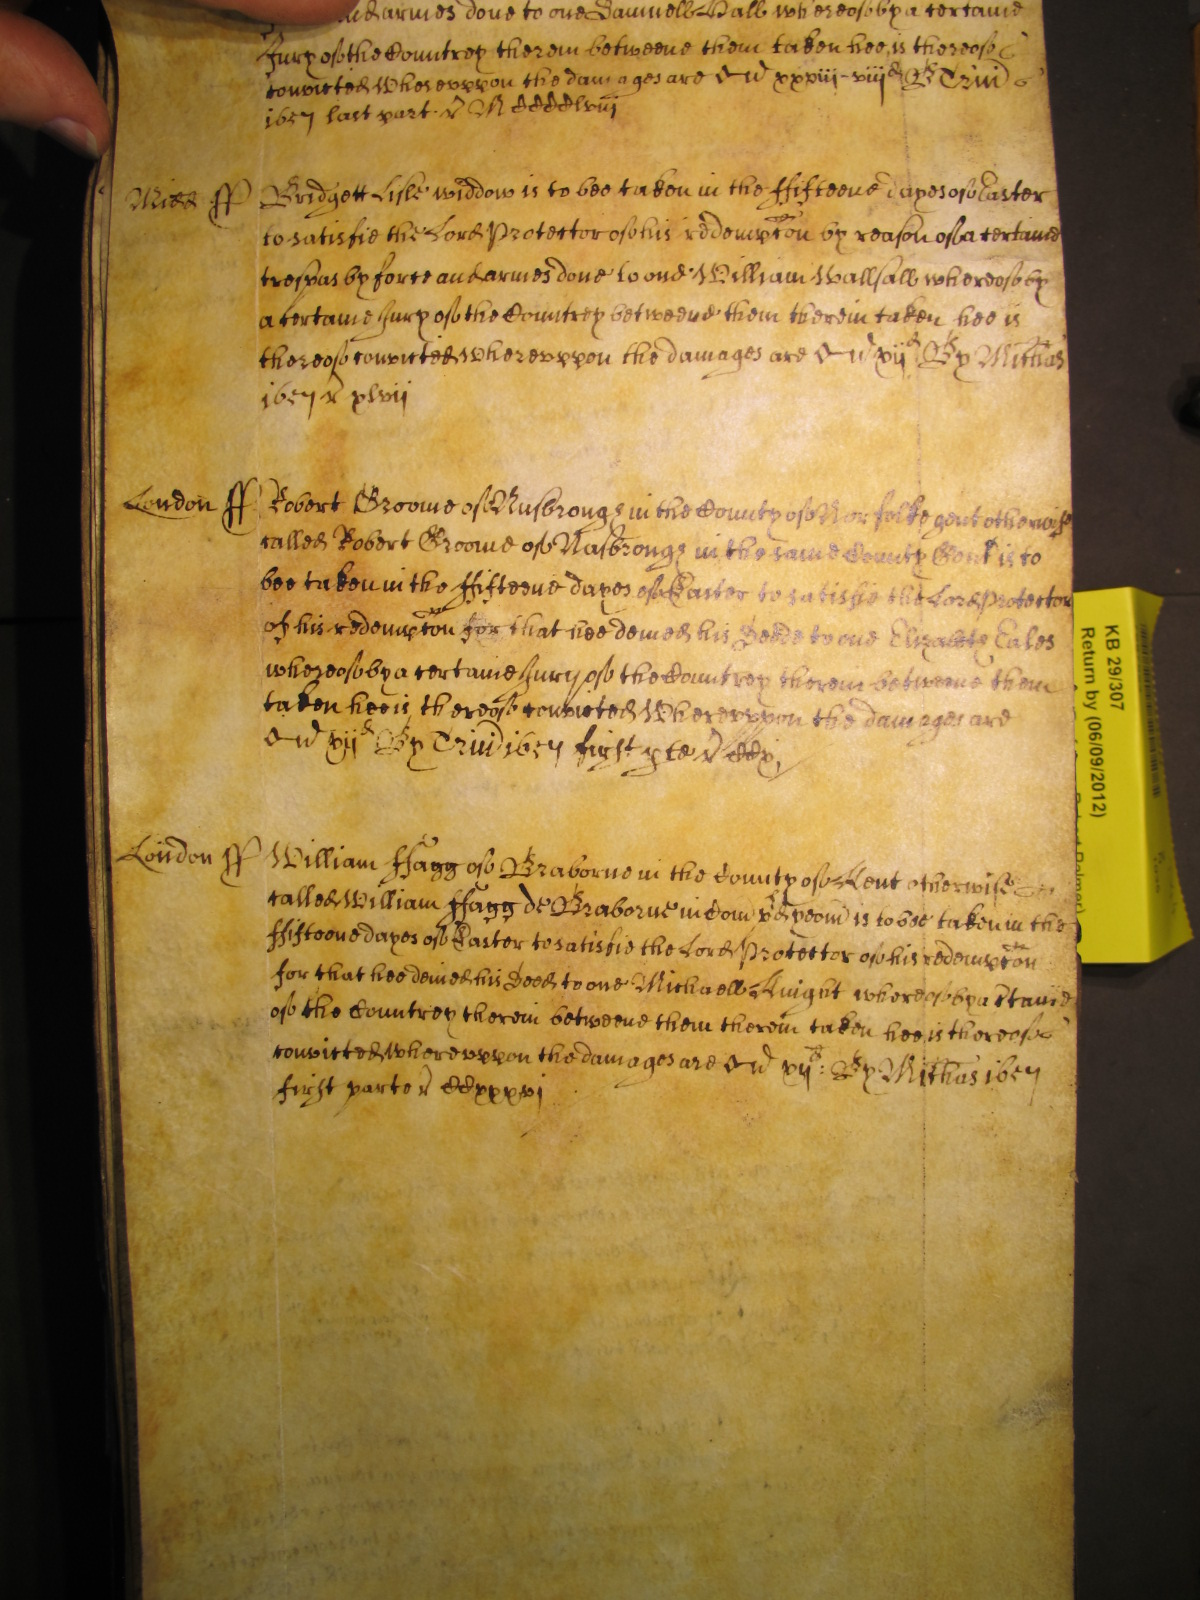 and armes done to one Samuell Hall whereof by a certaine
Jury of the Countrey therein betweene them taken hee is thereof
convicted Whereuppon the damages are xxxiii viijd By Trin
1657 last part r M CCCClviij
Midd ss Bridgett Lisle widdow is to bee taken in the ffifteene dayes of Easter
to satisfie the Lord Protector of his redempcon by reason of a certaine
trespas by force and armes done to one William Wallsall whereof by
a certaine Jury of the Countrey betweene them therein taken hee is
thereof convicted whereuppon the damages are xijd By Michas
1657 r xlvij
London ss Robert Groome of in the County of Norfolke gent otherwise
called Robert Groome of in the same County Gent is to
bee taken in the ffifteene dayes of Easter to satisfie the Lord Protector
of his redempcon for that hee denied his Deede to one Elizabeth Eales
whereof by a certaine Jury of the Countrey therein betweene them
taken hee is thereof convicted Whereuppon the damages are
xijd By Trin 1657 first pte r CCx
London ss William ffagg of Braborne in the County of Kent otherwise
called William ffagg de Braborne in Com pd yeom is to bee taken in the
ffifteene dayes of Easter to satisfie the Lord Protector of his redempcon
for that hee denied his Deed to one Michaell Knight whereof by a
of the Countrey therein betweene them therein taken hee is thereof
convicted whereuppon the damages are xijd: By Michas 1657
first parte r CCxxxvj
KB 29/307
Return by (06/09/2012)